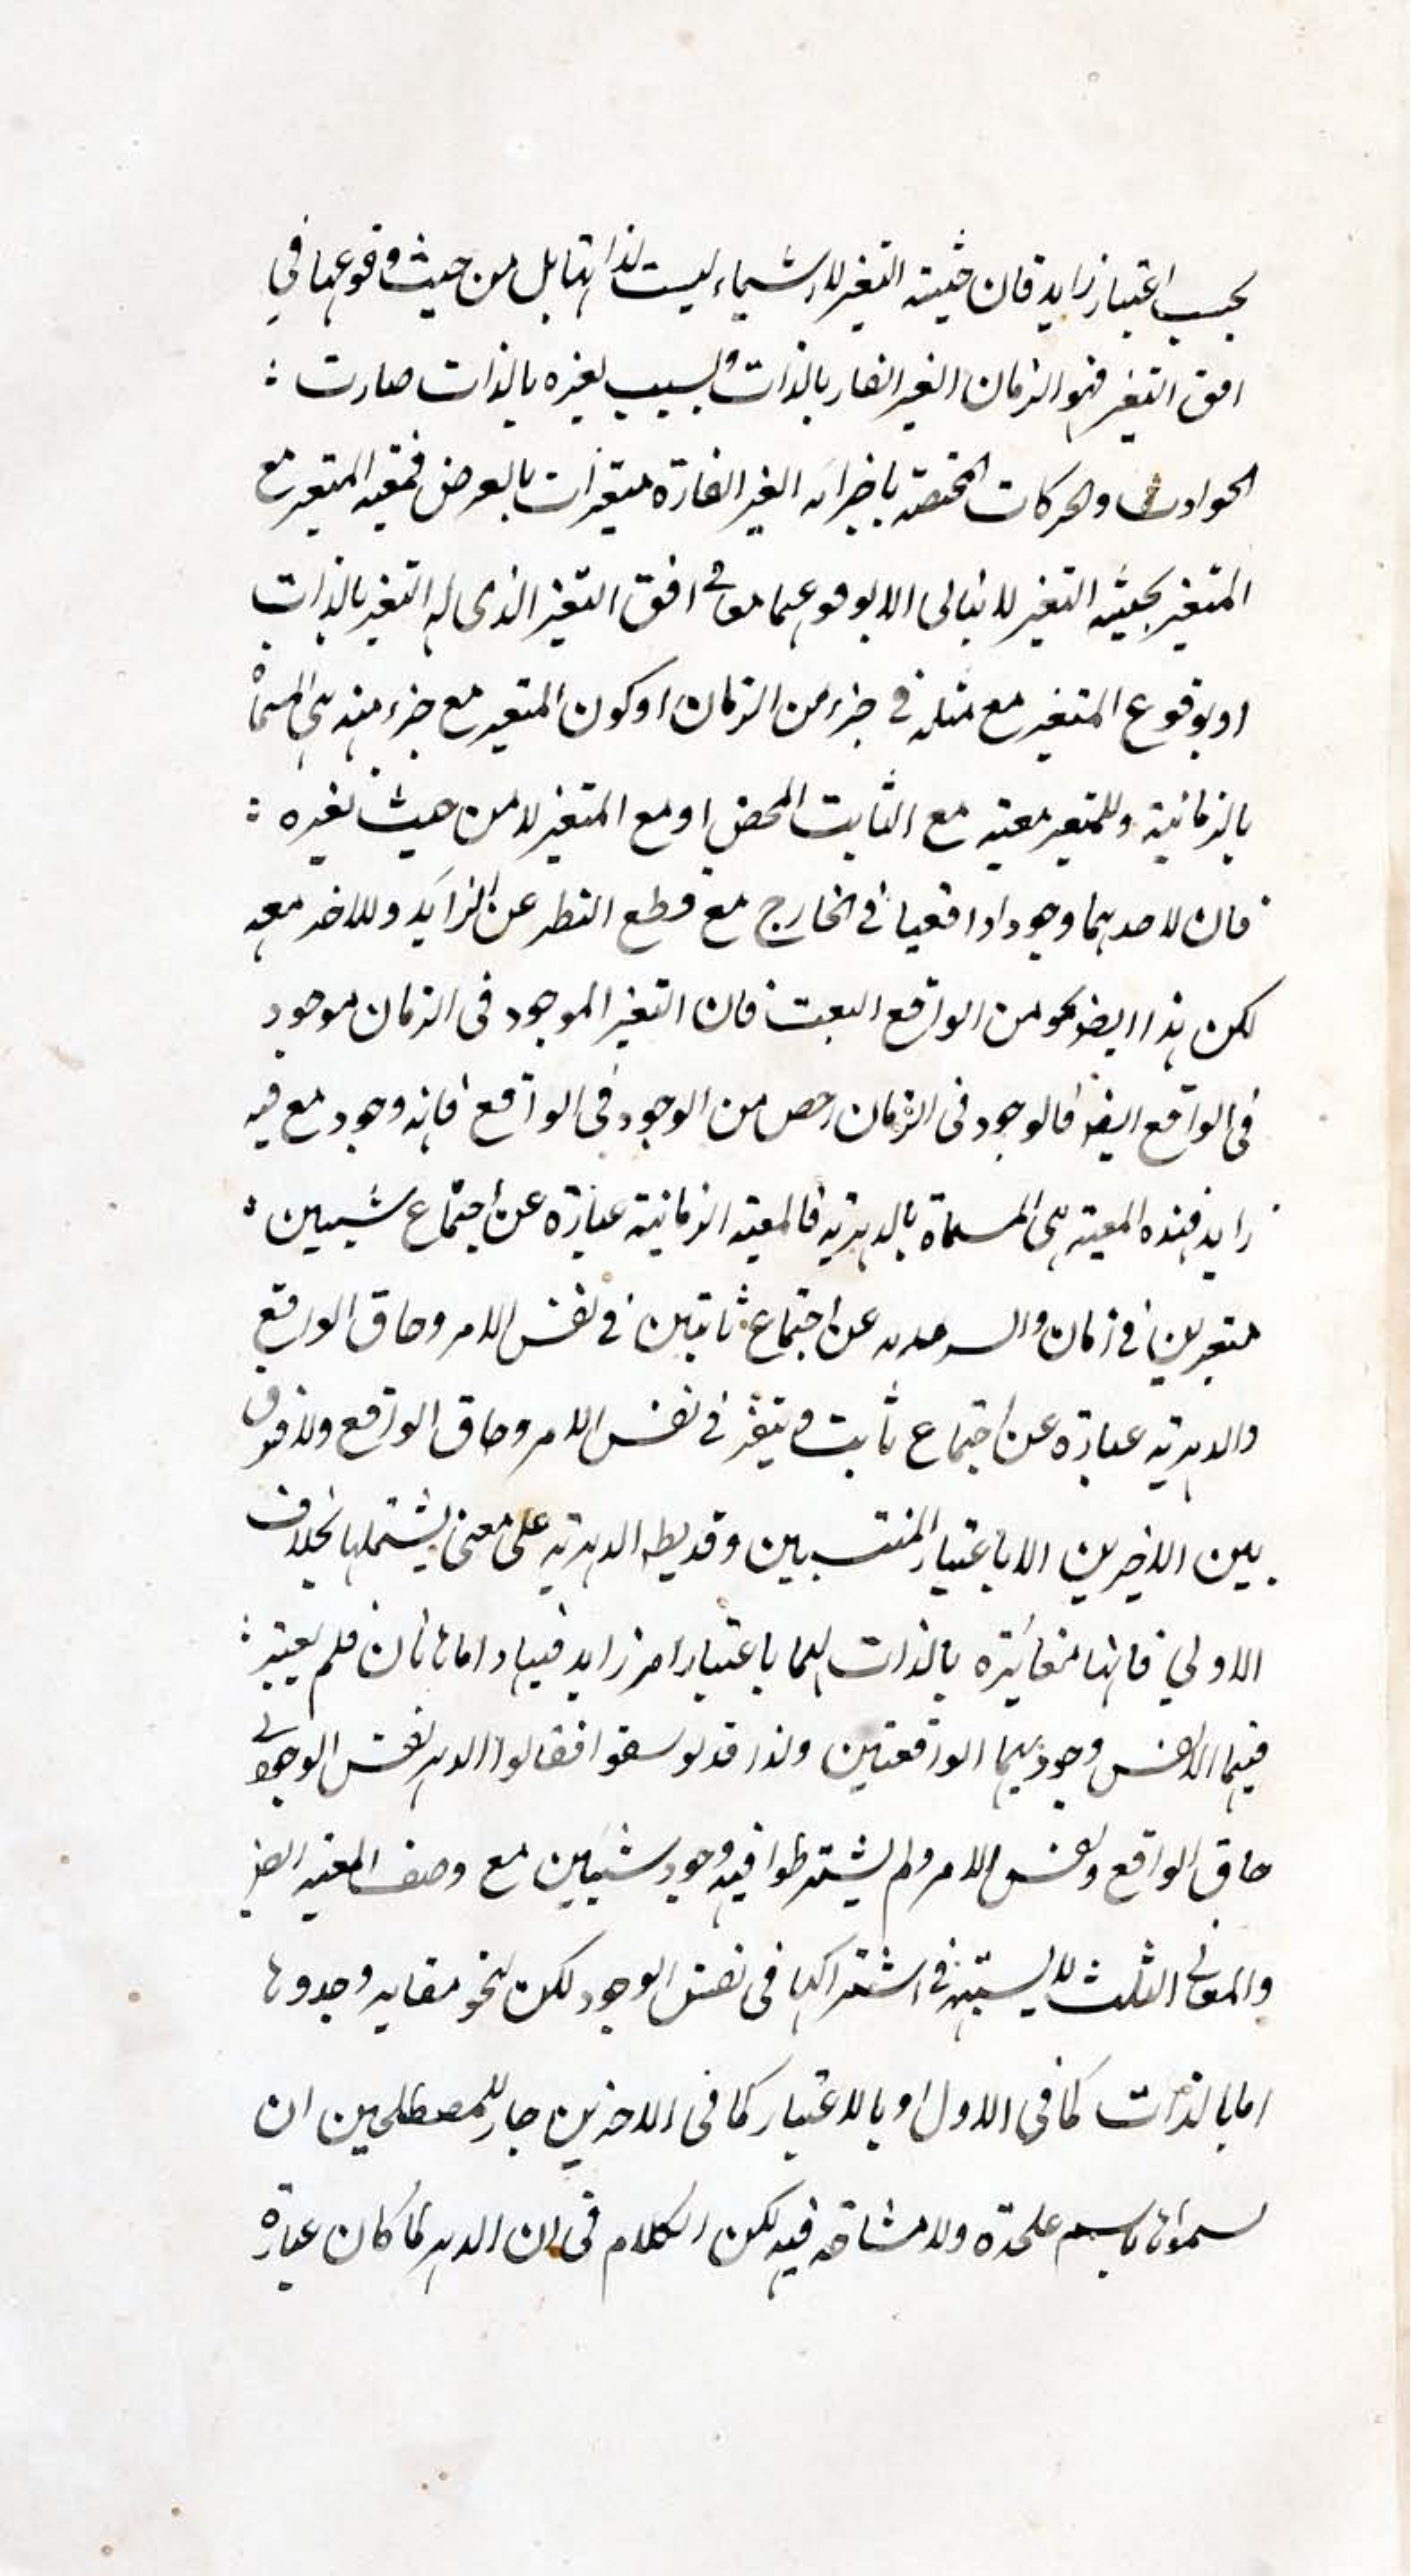 بحسب اعتبار زايد فان حيثية التغير للاشياء ليست لذاتها بل من حيث وقوعها في
افق التغير فهو الزمان الغير القار بالذات وبسبب تغيره بالذات صارت :
الحوادث والحركات المختصة باجزائه الغير القارة متغيرات بالعرض فمعية المتغير مع
المتغير بحيثية التغير لا يتاتى الا بوقوعهما معا في افق التغير الذى له التغير بالذات
او بوقوع المتغير مع مثله في جزء من الزمان او كون المتغير مع جزء منه هى المسماة
بالزمانية وللمتغير معية مع الثابت المحض او مع المتغير لا من حيث تغيره :
فان لاحدهما وجودا واقعيا في الخارج مع قطع النظر عن الزايد وللاخر معه
لكن هذا ايضا نحو من الواقع البحت فان التغير الموجود في الزمان موجود
في الواقع ايضا فالوجود في الزمان اخص من الوجود في الواقع فانه وجود مع قيد
زايد فهذه المعية هى المسماة بالدهرية فالمعية الزمانية عبارة عن اجتماع شيئين
متغيرين في زمان والسرمدية عن اجتماع ثابتين في نفس الامر وحاق الواقع
والدهرية عبارة عن اجتماع ثابت ومتغير في نفس الامر وحاق الواقع ولا فرق
بين الاخيرين الا باعتبار المنتسبين وقد يطلق الدهرية على معنى يشتملها بخلاف
الاولي فانها مغائرة بالذات لهما باعتبار امر زايد فيها واما هاتان فلم يعتبر :
فيهما الا نفس وجوديهما الواقعتين ولذا قد توسعوا فقالوا الدهر نفس الوجود في
حاق الواقع ونفس الامر ولم يشترطوا فيه وجود شيئين مع وصف المعية ايضا
والمعاني الثلث لا يشتبه في اشتراكها في نفس الوجود لكن لنحو مغايرة وجدوها
اما بالذات كما في الاول او بالاعتبار كما في الاخرين جاز للمصطلحين ان
يسموها باسم علحدة ولا مشاحة فيه لكن الكلام في ان الدهر لما كان عبارة